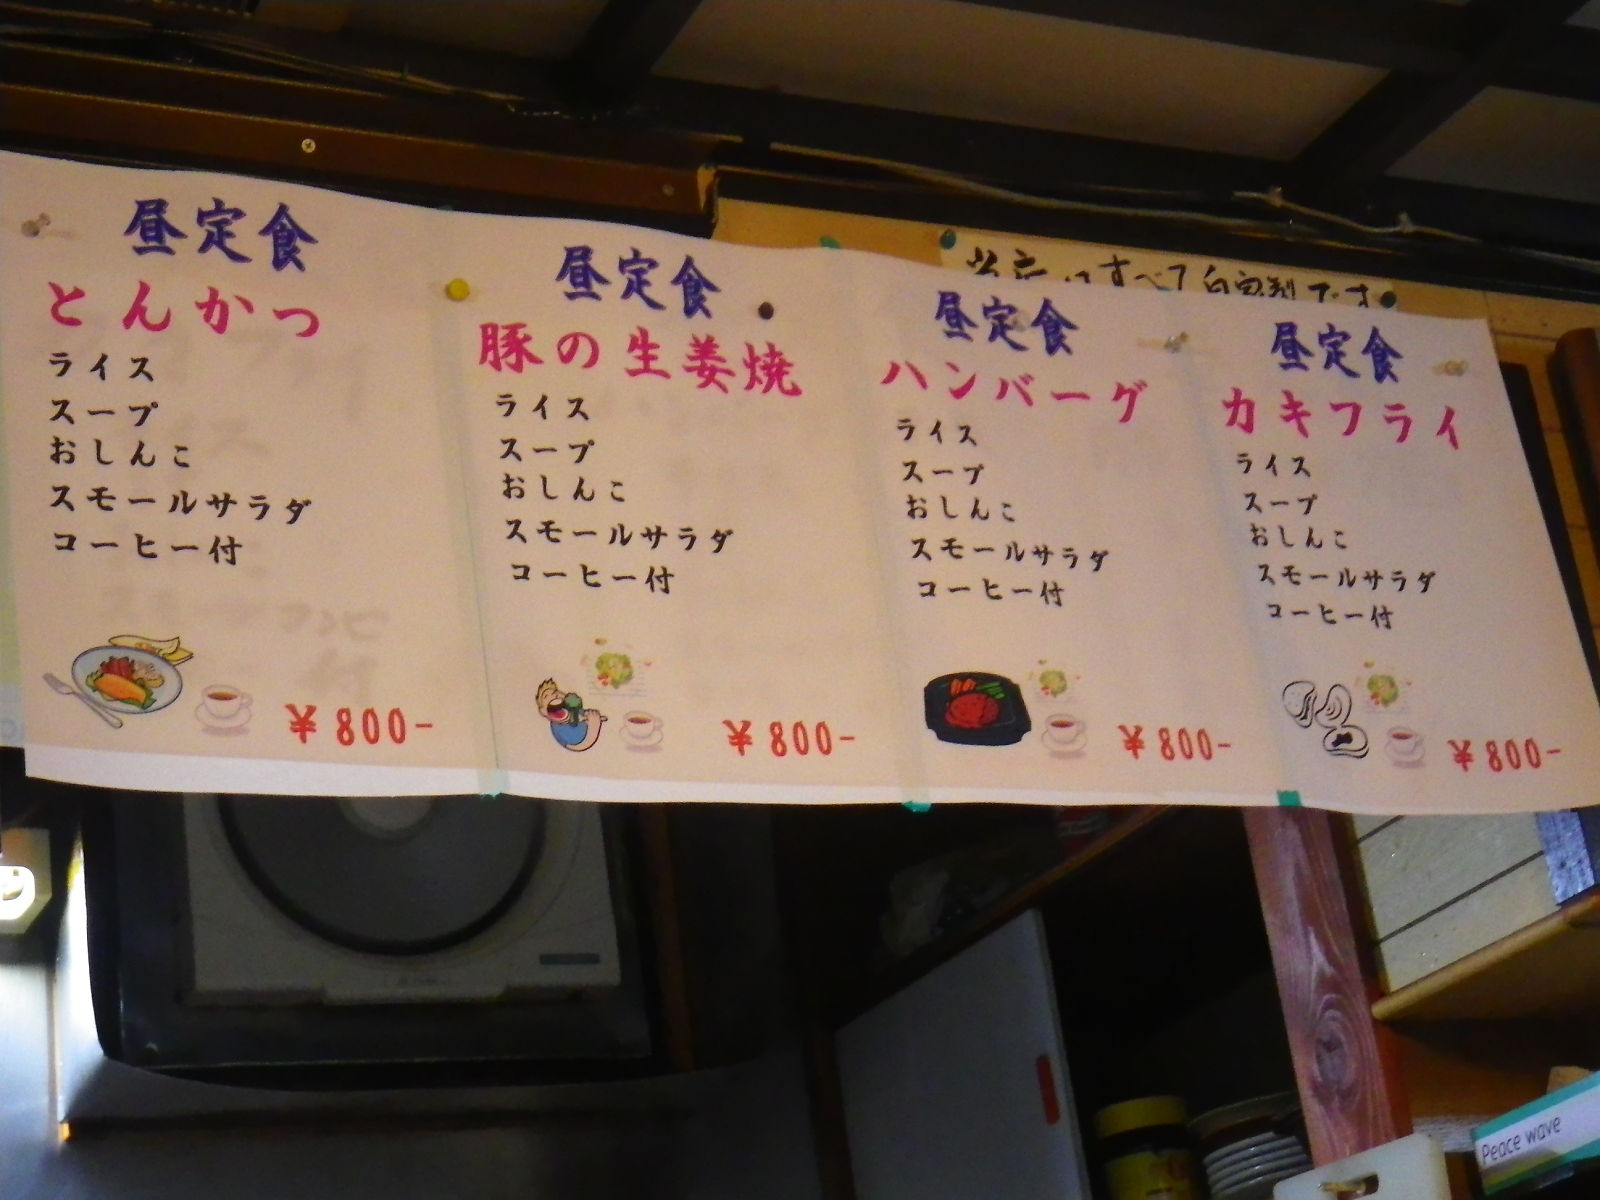 昼定食
とんかつ
ライス
スープ
おしんこ
スモールサラダ
コーヒー付
￥800-
昼定食
豚の生姜焼
ライス
スープ
おしんこ
スモールサラダ
コーヒー付
￥800-
昼定食
ハンバーグ
ライス
スープ
おしんこ
スモールサラダ
コーヒー付
￥800-
昼定食
カキフライ
ライス
スープ
おしんこ
スモールサラダ
コーヒー付
￥800-
すべて自家製です
Peace wave